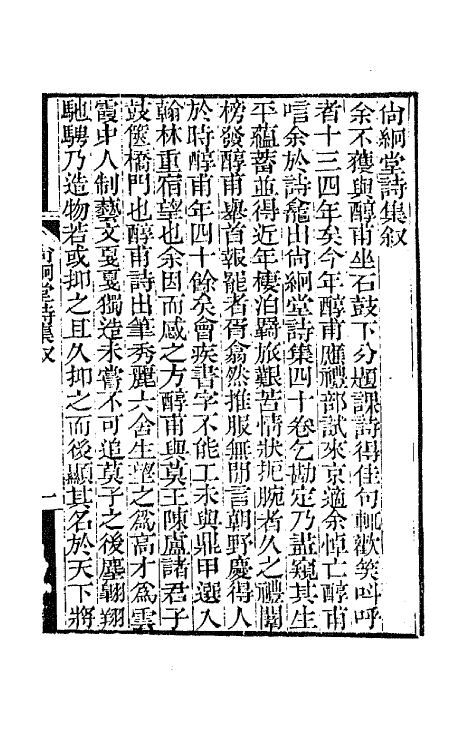 尙絅堂詩集叙
余不獲與醇甫坐石鼓下分題課詩得佳句輒歡笑叫呼
者十三四年矣今年醇甫應禮部試來京適余悼亡醇甫
唁余於詩龕出尙絅堂詩集四十卷乞勘定乃盡窺其生
平蘊蓄並得近年棲泊羇旅艱苦情狀扼腕者久之禮闈
榜發醇甫舉首報罷者胥翕然推服無閒言朝野慶得人
於時醇甫年四十餘矣會疾書字不能工未與鼎甲選入
翰林重宿望也余因而感之方醇甫與莫王陳盧諸君子
鼓篋橋門也醇甫詩出筆秀麗六舍生望之爲高才爲雲
霞中人制藝文戛戛獨造未嘗不可追莫子之後塵翶翔
馳騁乃造物若或抑之且久抑之而後顯其名於天下將
尙絅堂詩集叙
一